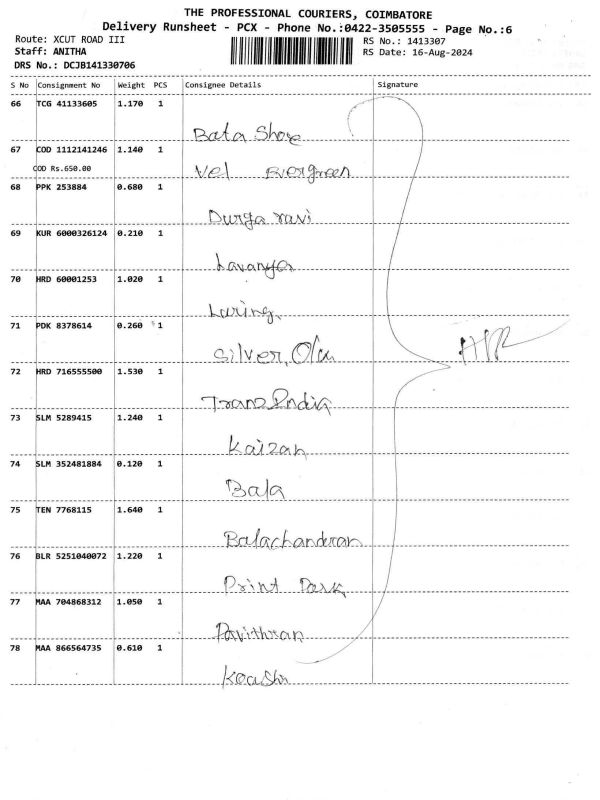 THE PROFESSIONAL COURIERS, COIMBATORE
Delivery Runsheet - PCX - Phone No.:0422-3505555 - Page No.:6
Route: XCUT ROAD III RS No.: 1413307
Staff: ANITHA RS Date: 16-Aug-2024
DRS No.: DCJB141330706
S No Consignment No Weight PCS Consignee Details Signature
66 TCG 41133605 1.170 1
Bata Shoe
67 COD 1112141246 1.140 1
COD Rs.650.00 Vel Evergreen
68 PPK 253884 0.680 1
Durga ravi
69 KUR 6000326124 0.210 1
Lavanya
70 HRD 60001253 1.020 1
71 PDK 8378614 0.260 1
Silver,
72 HRD 716555500 1.530 1
Trans India
73 SLM 5289415 1.240 1
Kaizan
74 SLM 352481884 0.120 1
Bala
75 TEN 7768115 1.640 1
Balachandran
76 BLR 5251040072 1.220 1
Print Park
77 MAA 704868312 1.050 1
Pavithran
78 MAA 866564735 0.610 1